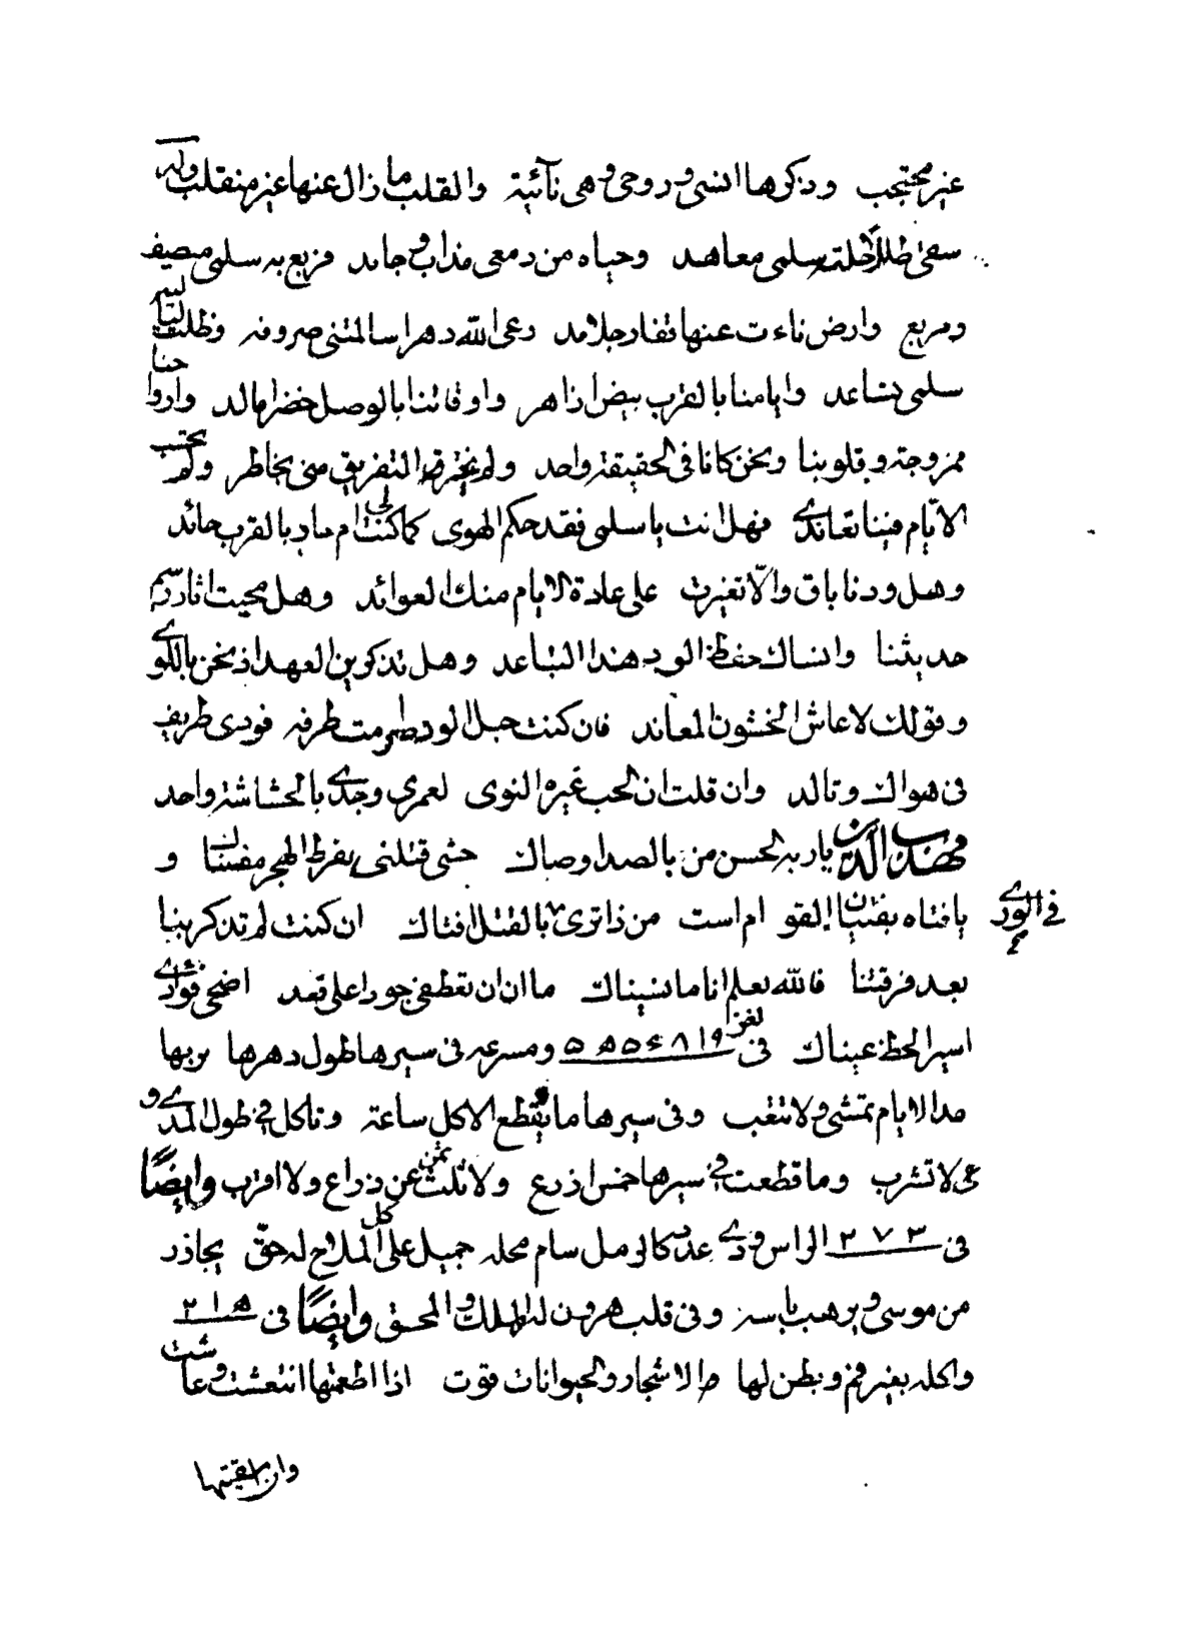 غير محتجب وذكرها انسى وروحى وهى نآئية والقلب ما زال عنها غير منقلب وله
سقى طللا حلته سلمى معاهد وحياه من دمعى مذاب وجامد فربع به سلمى مصيف
ومربع وارض ناءت عنها قفار جلامد رعى الله دهرا سالمتنى صروفه وظلت ليالينا
سلمى تساعد وايامنا بالقرب بيض ازاهر واوقاتنا بالوصل خضر امالد وارواحنا
ممزوجة وقلوبنا ونحن كانا فى الحقيقة واحد ولم يخترق التفريق منى بخاطر ولم تحتسب
الايّام فينا تعاندى فهل انت يا سلمى فقد حكم الهوى كما كنت لى ام حاد بالقرب حائد
وهل ودنا باق والّا تغيرت على عادة الايام منك العوائد وهل محيت اثار رسم
حديثنا وانساك حفظ الود هذا التباعد وهل تذكرين العهد اذ نحن باللوى
وقولك لا عاش الخئون المعاند فان كنت حبل الود صرمت طرفه فودى طريف
فى هواك وتالد وان قلت ان الحب غيره النوى لعمرى وجدى بالحشاشة واحد
مهذب الدين يا ربة الحسن من بالصد اوصاك حتى قتلتى بفرط الهجر مضناك و
فى الودى
يا فتاه بفتان القوام است من ذا ترى بالقتل افتاك ان كنت لم تذكرينا
بعد فرقتنا فالله يعلم انا ما نسيناك ما ان ان تعطفى جودا على تعد اضحى فؤادى
اسير الحظ عيناك فى لغز ٥٥٥٤٨١٩ ومسرعه فى سيرها طول دهرها يربها
مدا الايام تمشى ولا تتعب وفى سيرها ما يقطع الاكل ساعة وتاكل فى طول المدى و
هى لا تشرب وما قطعت فى سيرها خمس اذرع ولا ثلث ثمن عن ذراع ولا اقرب وايضًا
فى ٢٧٣ الراس وذى عدد كالرمل سام محله جميل على كل الملاح له حق يحاذر
من موسى ويرهب باسه وفى قلب هرون له الملك والمحق وايضًا فى ٢١٥
واكله بغير فم وبطن لها الاشجار والحيوانات قوت اذا اطعمتها انتعشت وعاشت
وان سقيتها